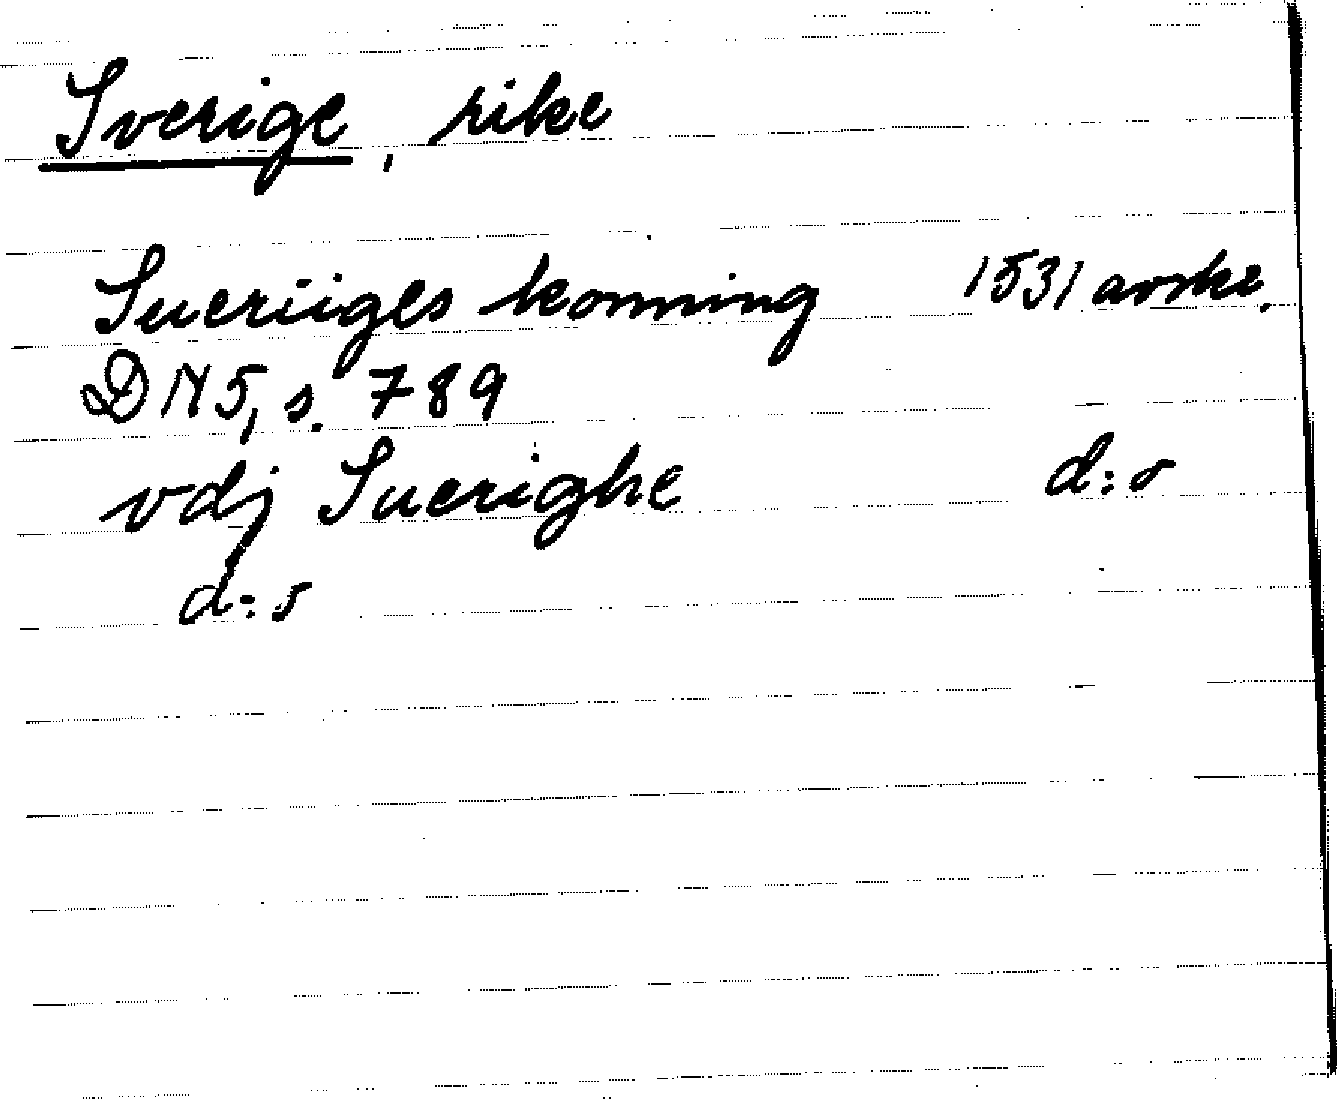 Sverige, rike
Sueriiges konning 1531 avskr.
DN 5, s. 789
vdj Suerighe d:o
d:o